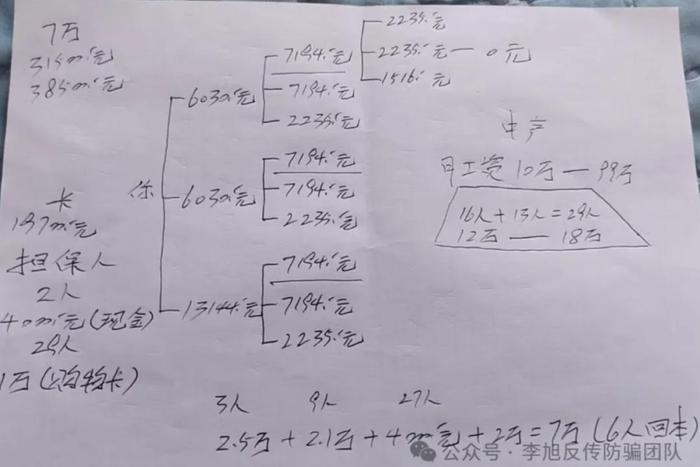 7万
你
6030元
7194元
2235元
2235元 — 0元
1516元
7194元
2235元
6030元
7194元
7194元
2235元
13144元
7194元
7194元
2235元
卡
担保人
2人
(现金)
29人
1万(购物卡)
中产
月工资10万 — 99万
16人+13人=29人
12万 — 18万
3人 9人 27人
2.5万+2.1万+ +2万=7万(6人回本)
公众号·李旭反传防骗团队